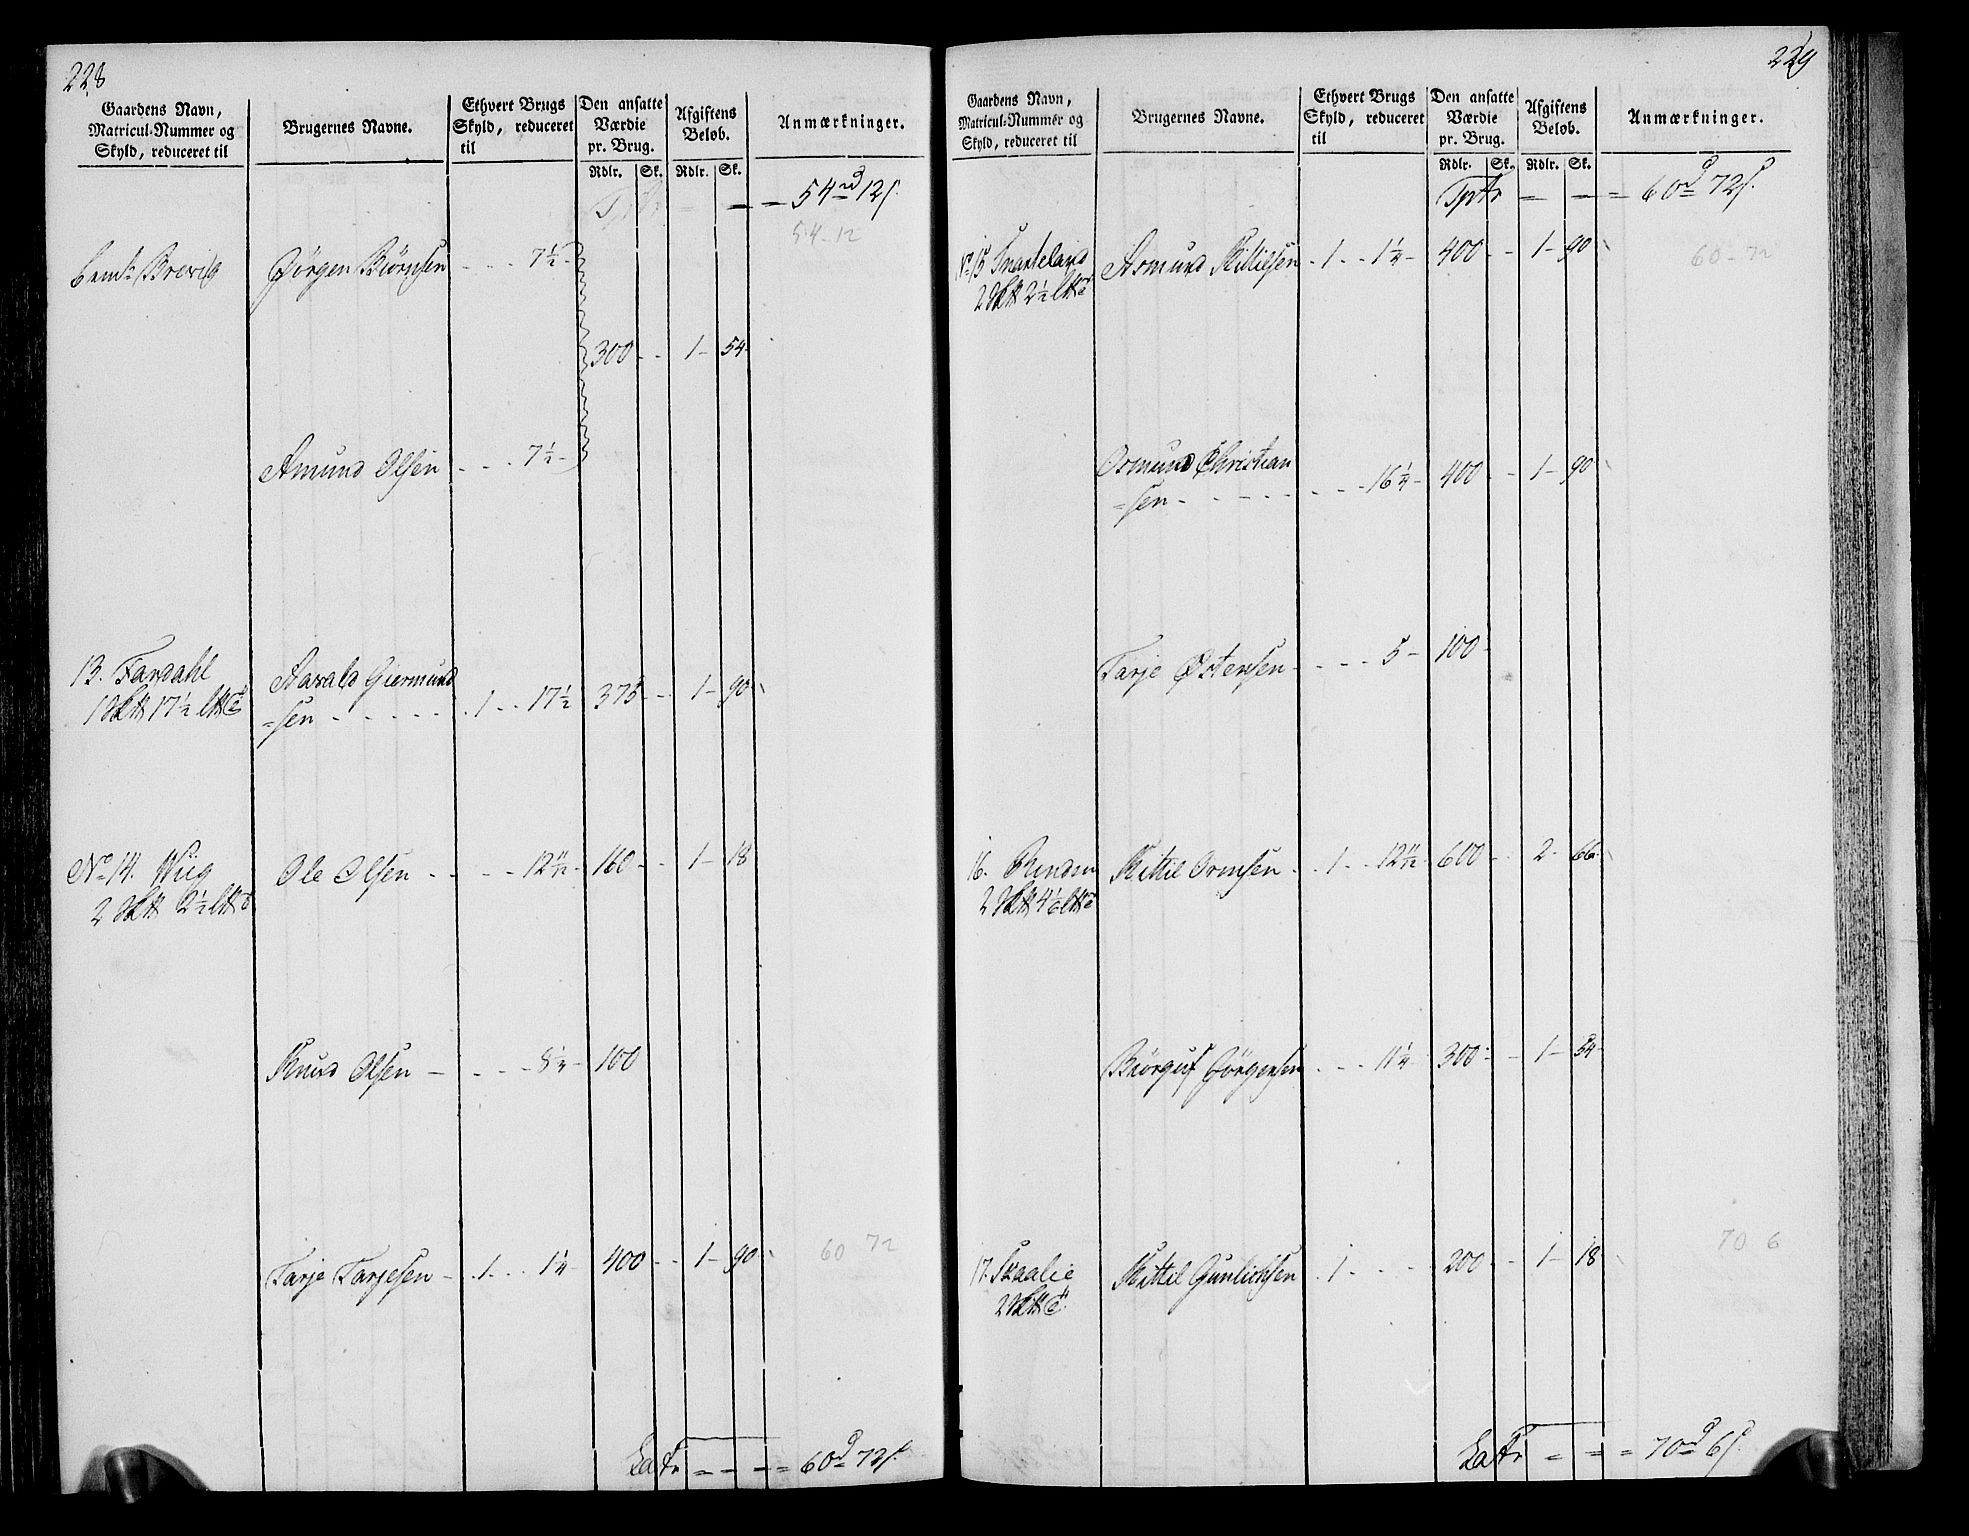 228
Gaardens Navn, Matricul-Nummer og Skyld, reduceret til
Brugernes Navne.
Ethvert Brugs Skyld, reduceret til
Den ansatte Værdie pr. Brug.
Afgiftens Beløb.
Anmærkninger.
Rdlr. Sk. Rdlr. Sk.
Tptr — — — 54 rd 12 s.
54-12
Brevig Jørgen Biørnsen - - - 7½ -
300 - - 1 - 54 -
Amund Olsen - - - 7½ -
13. Fardahl Aavald Giermund
1 17½ =sen - - - - - 1 - - 17½ 375 - - 1 - 90
No 14. Wiig Ole Olsen - - - - 12 11/12 - 160 - - 1 - 18
2 2½
Knud Olsen - - - - 8¼ - 100
Tarje Tarjesen - 1 - - - 1¼ - 400 - - 1 - 90
60 72
Latr = = = 60 d 72 s.
229
Gaardens Navn, Matricul-Nummer og Skyld, reduceret til
Brugernes Navne.
Ethvert Brugs Skyld, reduceret til
Den ansatte Værdie pr. Brug.
Afgiftens Beløb.
Anmærkninger.
Rdlr. Sk. Rdlr. Sk.
Tptr — — = 60 d 72 s.
No 15 Snarteland Asmund Kittilsen - 1 - - 1¼ - 400 - - 1 - 90
60-72
2 2½
Osmund Christian
=sen - - - - - - - - 16¼ - 400 - - 1 - 90
Tarje Østensen - - - - 5 - 100 -
16. Kittil Ormsen - - 1 - - 12 11/12 - 600 - - 2 - 66
2 4 1/6
Biørguf Jørgensen - - - 11¼ - 300 - - 1 - 54 -
70 6
17. Skaalie Kittil Gunlichsen - 1 - - - - 200 - - 1 - 18
2
Latr = = = 70 d 6 s.